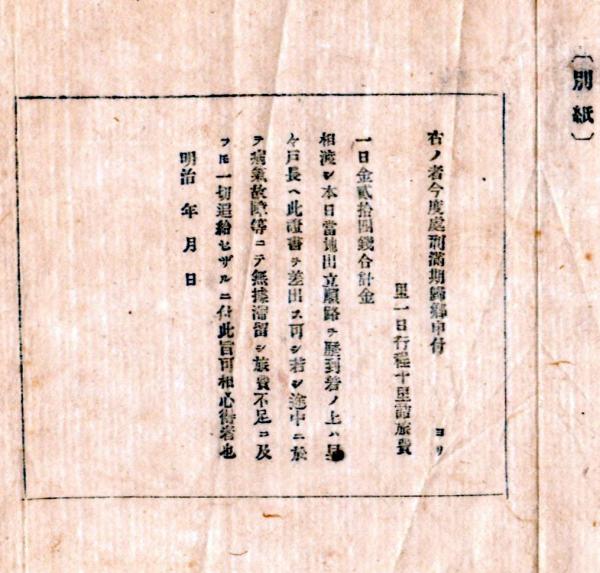 〔別紙〕
右ノ者今度處刑滿期歸鄉申付 ヨリ
里一日行程十里詰旅費
一日金貳拾四錢合計金
相渡シ本日當地出立順路ヲ歷到着ノ上ハ早
々戸長ヘ此證書ヲ差出ス可シ若シ途中ニ於
テ病氣故障等ニテ無據滯留シ旅費不足ニ及
フモ一切追給セザルニ付此旨可相心得者也
明治 年 月 日